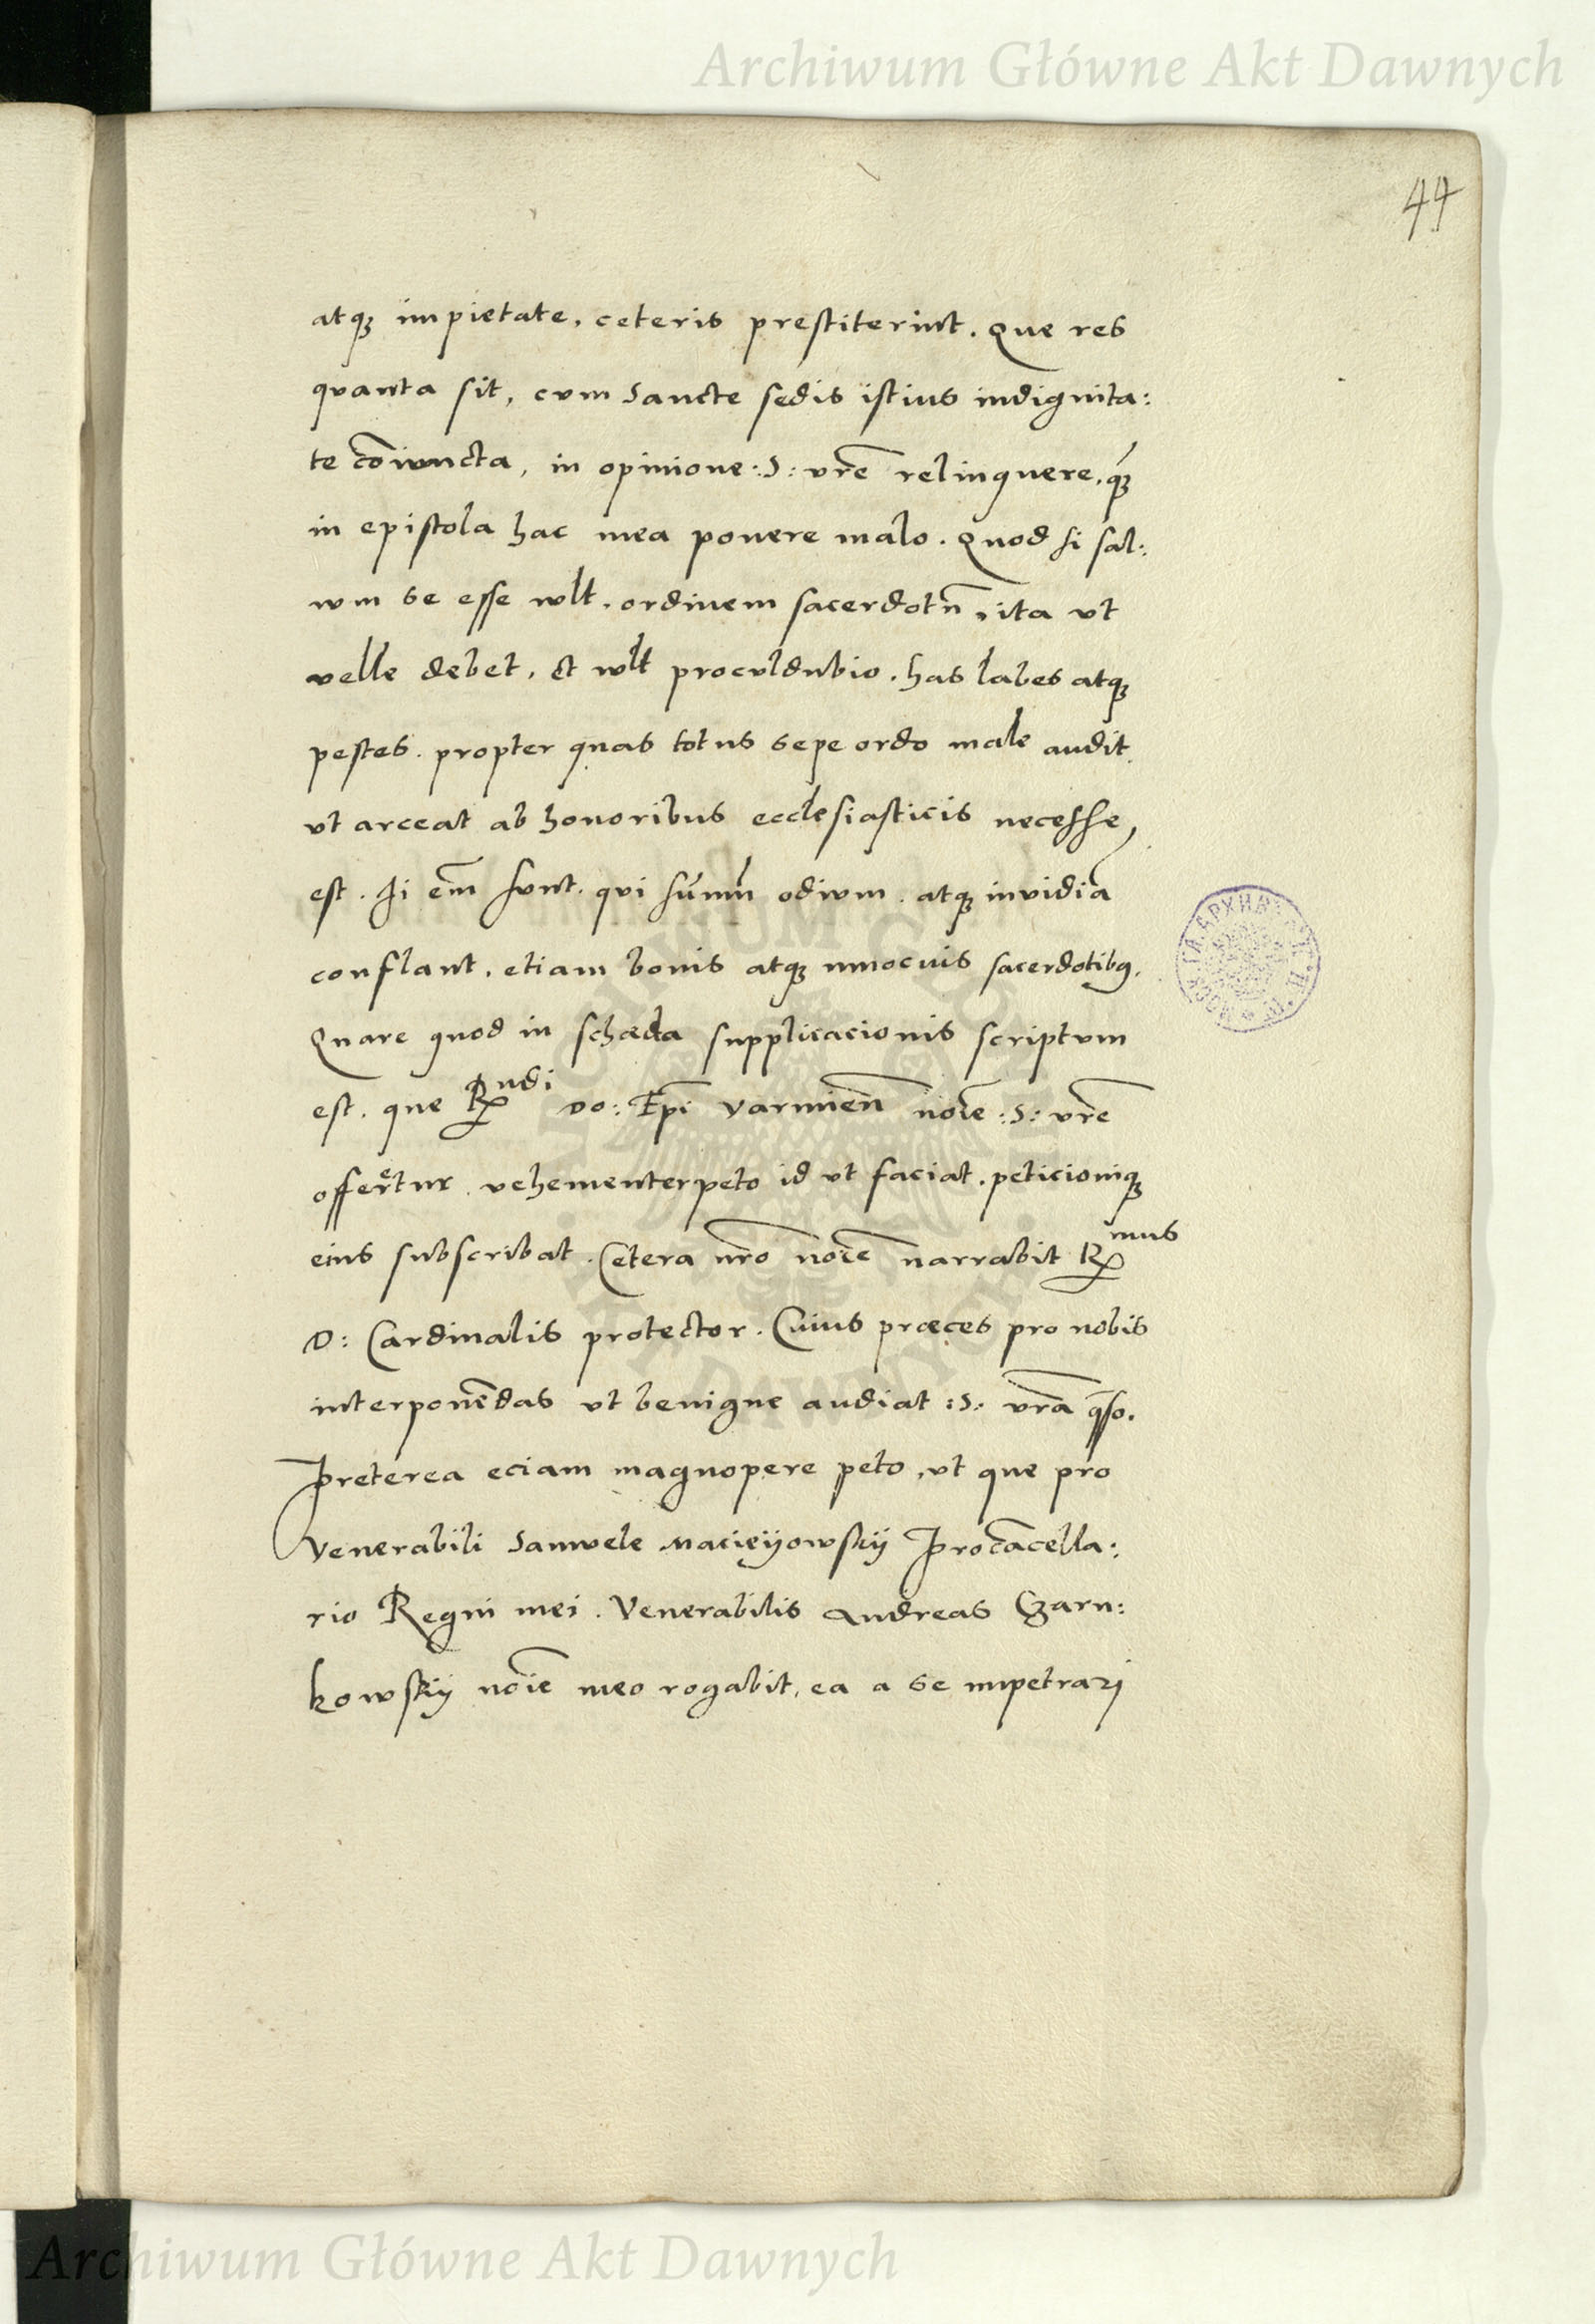 Archiwum Główne Akt Dawnych
44
atqꝫ impietate, ceteris prestiterint. Que res
quanta sit, cum Sancte sedis istius indignita:
te cōiuncta, in opinione :S: vr̄e relinquere, qꝫ
in epistola hac mea ponere malo. Quod si sal:
wm se esse wlt, ordinem sacerdotū, ita vt
velle debet, et wlt proculdubio, has labes atqꝫ
pestes. propter quas totus sepe ordo male audit.
vt arceat ab honoribus ecclesiasticis necesse
est. Ji em̄ sunt. qui sum̄ū odium. atqꝫ inuidiā
conflant, etiam bonis atqꝫ innocuis sacerdotibꝫ.
Quare quod in schæda supplicacionis scriptum
est. que R̄ndi Do: Ep̄i Varmien̄ noīe :S: vr̄e
offertur. vehementer peto id vt faciat. peticioniqꝫ
eius subscribat. Cetera nr̄o noīe narrabit R̄mus
D: Cardinalis protector. Cuius præces pro nobis
interponēdas vt benigne audiat :S: vr̄a q̄so.
Preterea eciam magnopere peto, vt que pro
Venerabili Samuele Macieyowskij Procācella:
rio Regni mei. Venerabilis Andreas Czarn:
kowskij noīe meo rogabit, ea a se impetrari
Archiwum Główne Akt Dawnych